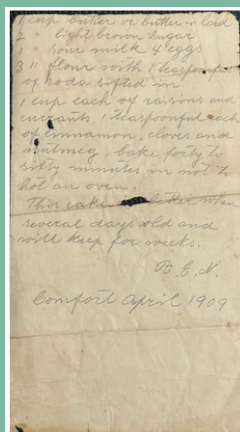 1 cup butter or butter & lard
2 " light brown sugar
1 " sour milk 4 eggs
3 " flour with 1 teaspoonful
of soda sifted in
1 cup each of raisins and
currants, 1 teaspoonful each
of cinnamon, cloves and
nutmeg, bake forty to
sixty minutes in not to
hot an oven.
This cake better when
several days old and
will keep for weeks.
E. N.
Comfort April 1909